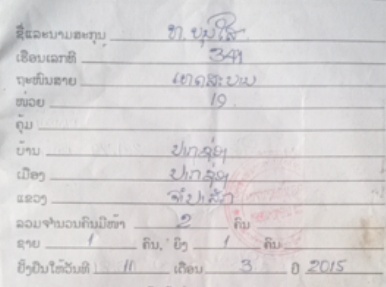 ຊື່ແລະນາມສະກຸນ ທ. ບຸນໃສ
ເຮືອນເລກທີ 341
ຖະໜົນສາຍ
ໜ່ວຍ 19
ຄຸ້ມ
ບ້ານ ປາກຊ່ອງ
ເມືອງ ປາກຊ່ອງ
ແຂວງ ຈຳປາສັກ
ລວມຈຳນວນຄົນມີໜ້າ 2 ຄົນ
ຊາຍ 1 ຄົນ, ຍິງ 1 ຄົນ
ຢັ້ງຢືນໃຫ້ວັນທີ 11 ເດືອນ 3 ປີ 2015